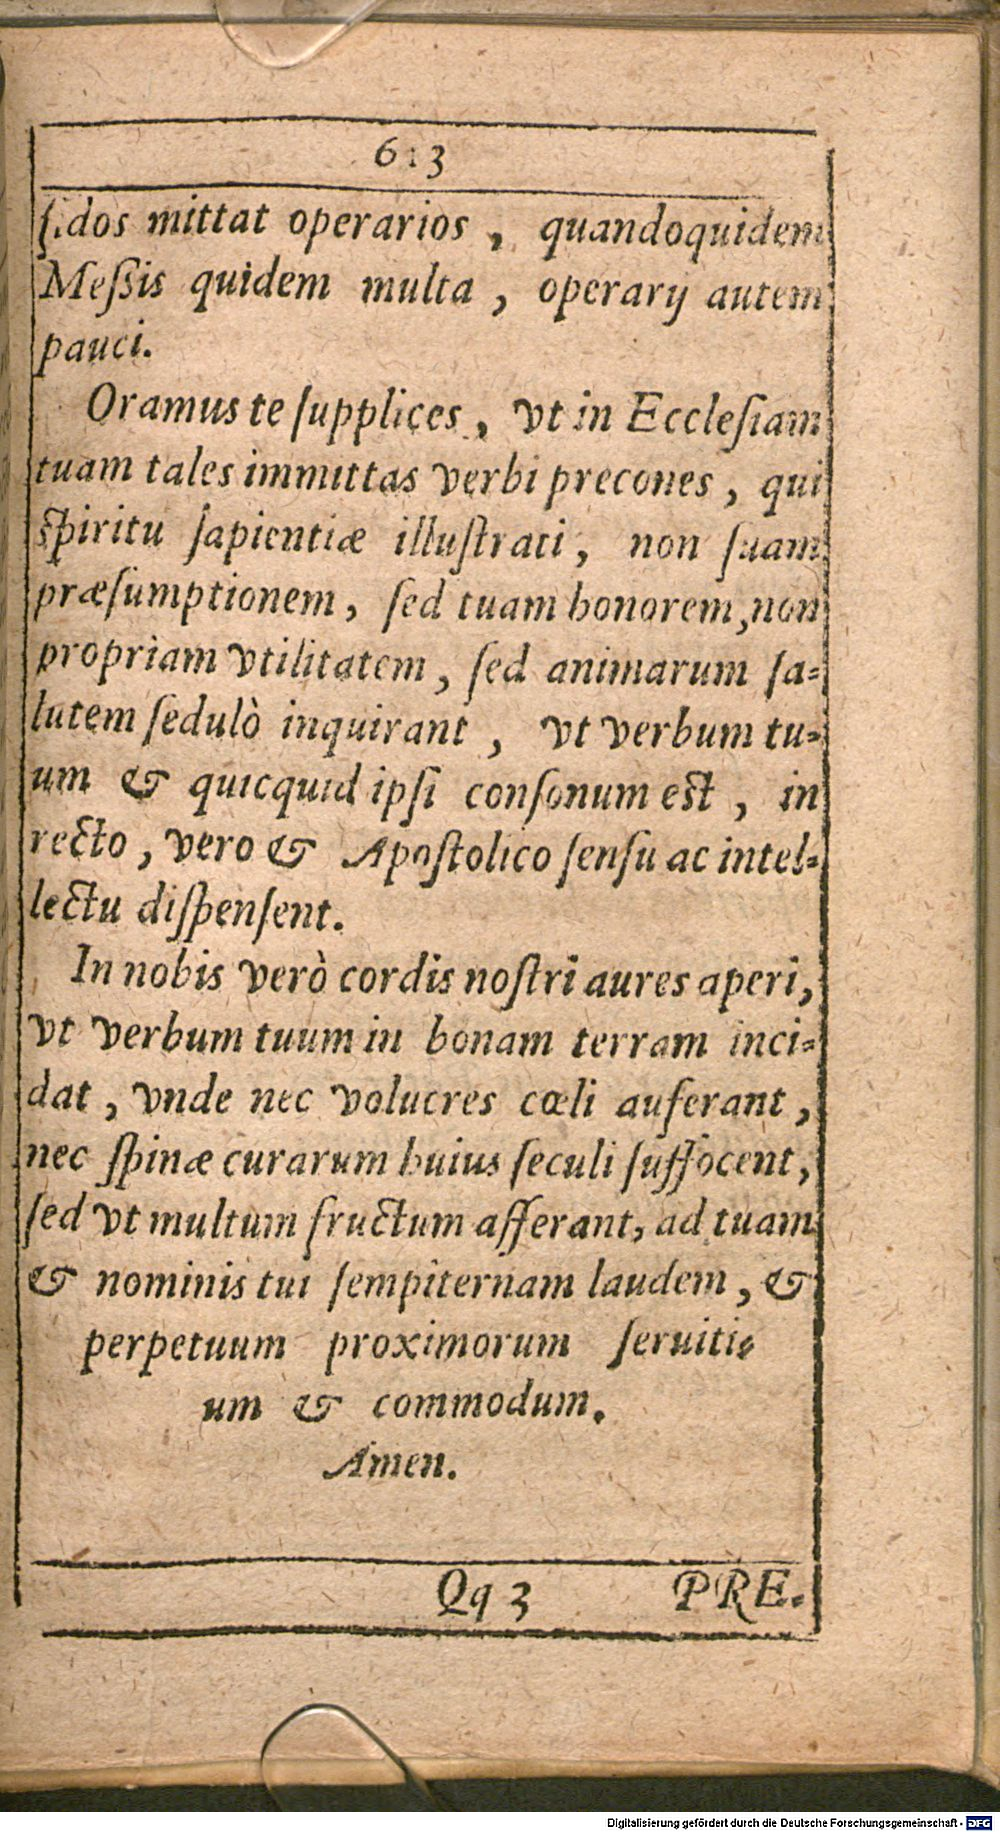 613
ſidos mittat operarios, quandoquidem
Meßis quidem multa, operarij autem
pauci.
Oramus te ſupplices, vt in Eccleſiam
tuam tales immittas verbi precones, qui
ſpiritu ſapientiæ illuſtrati, non ſuam
præſumptionem, ſed tuam honorem, non
propriam vtilitatem, ſed animarum ſa-
lutem ſedulò inquirant, vt verbum tu-
um & quicquid ipſi conſonum eſt, in
recto, vero & Apoſtolico ſenſu ac intel-
lectu diſpenſent.
In nobis verò cordis noſtri aures aperi,
vt verbum tuum in bonam terram inci-
dat, vnde nec volucres cœli auferant,
nec ſpinæ curarum huius ſeculi ſuffocent,
ſed vt multum fructum afferant, ad tuam
& nominis tui ſempiternam laudem, &
perpetuum proximorum ſeruiti-
um & commodum.
Amen.
Qq 3 PRE-
Digitalisierung gefördert durch die Deutsche Forschungsgemeinschaft - DFG